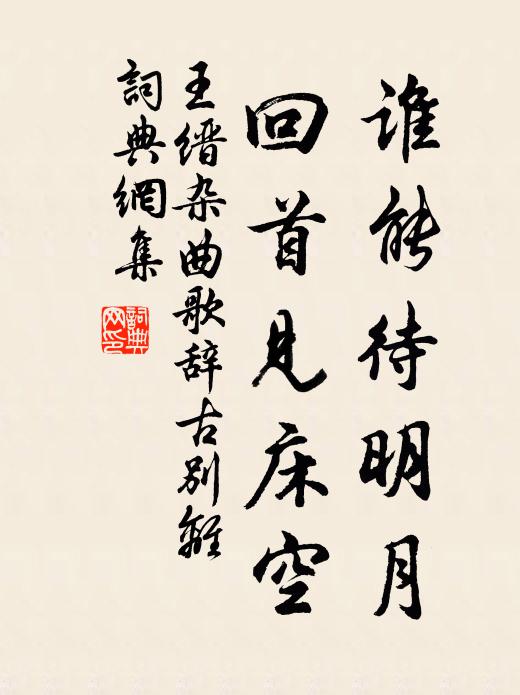 谁能待明月
回首见床空
王缙杂曲歌辞古别離
詞典網集
詞典
网印